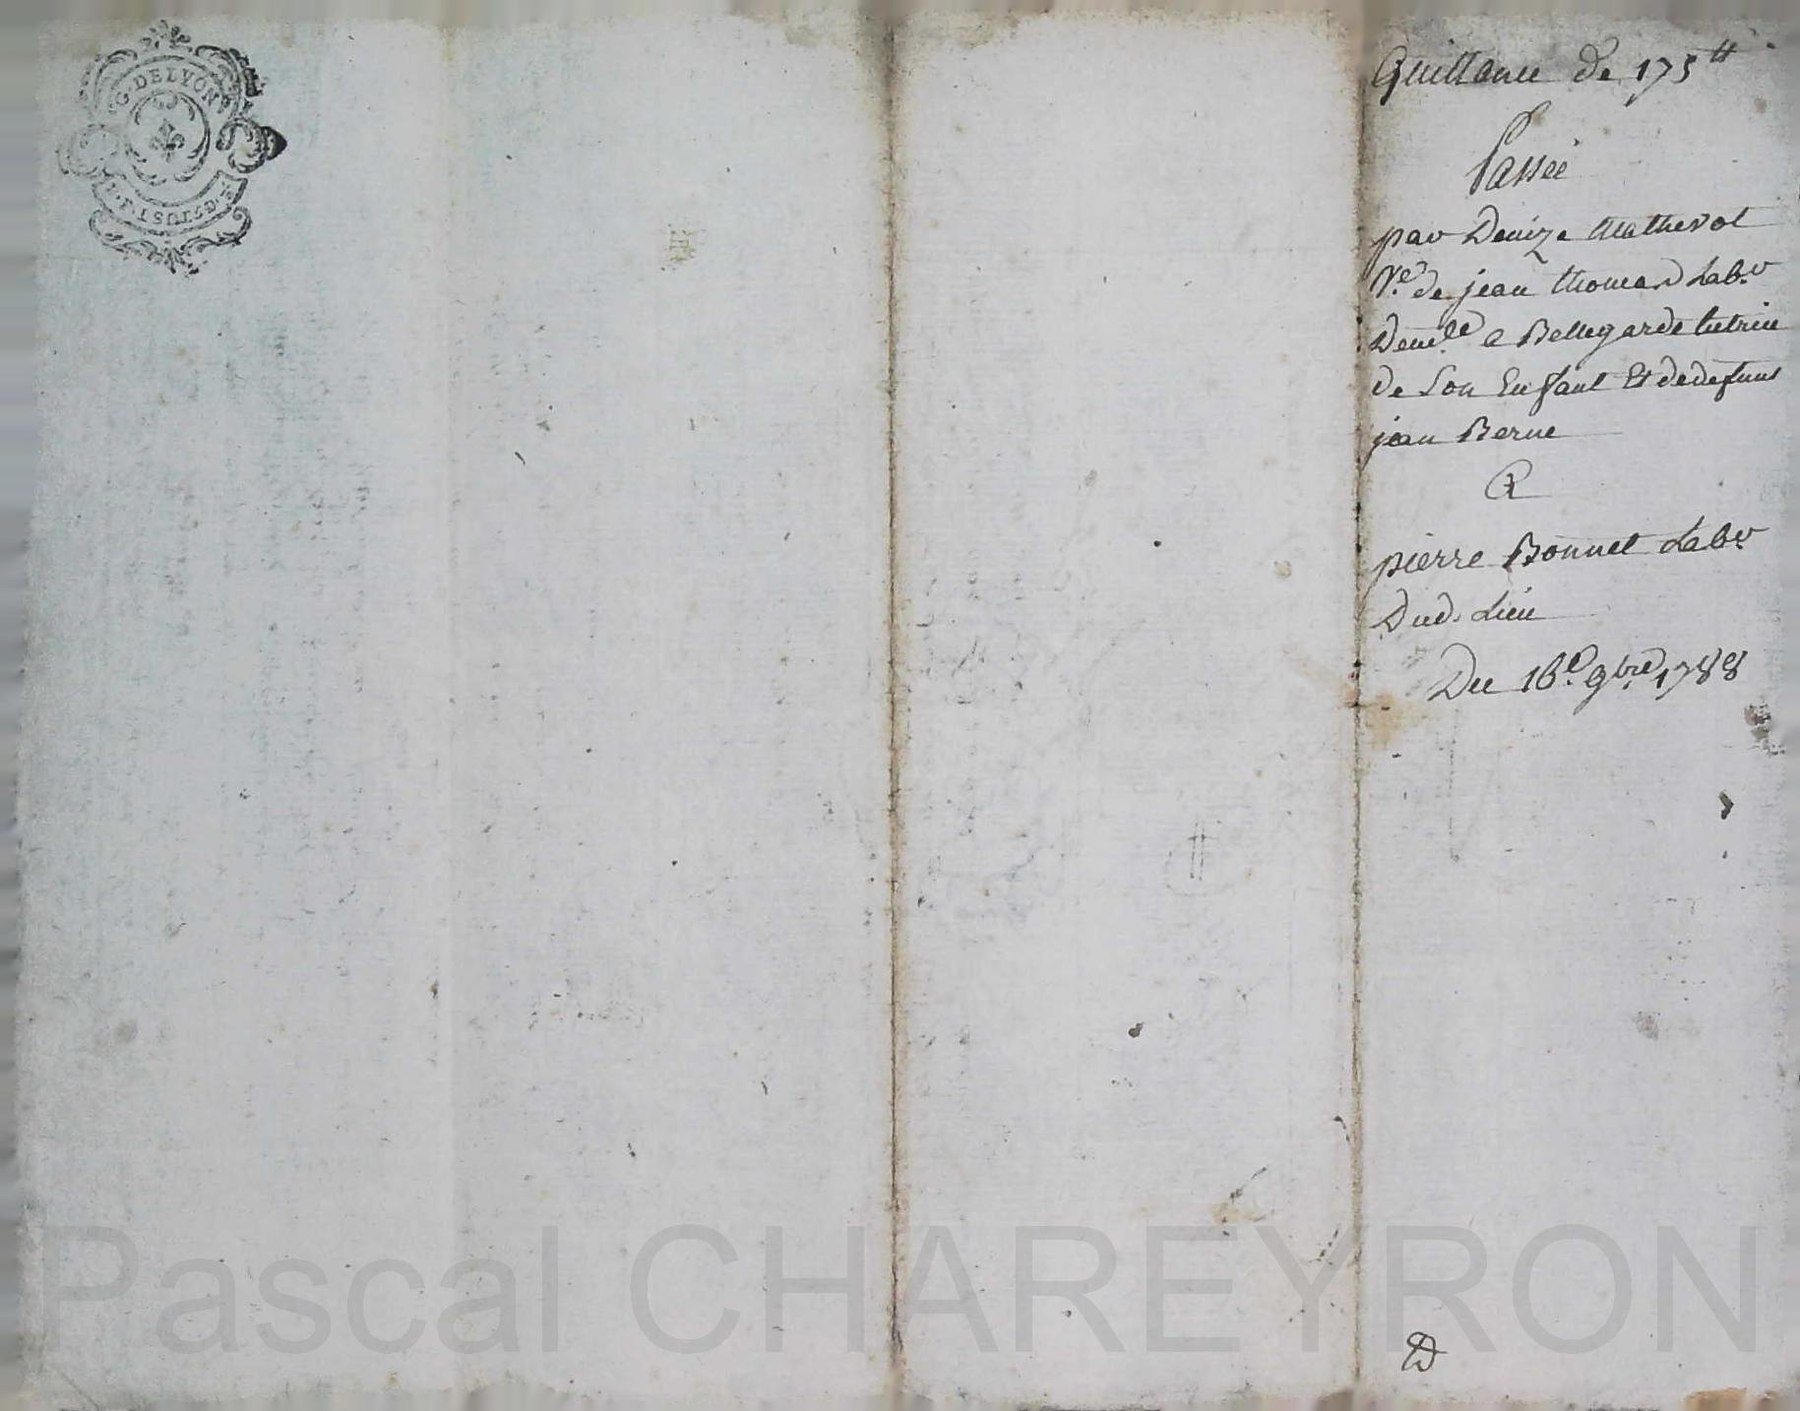 G. DE LYON
Quittance de 175 ₶
Passée
par Denize Mathevot
Ve. de jean thomas Lab.r
Dem.te a Bellegarde tutrice
de Son Enfant Et de defunt
jean Berne
A
pierre Bonnet Lab.r
Dud. Lieu
Du 16.e 9bre. 1788
Pascal CHAREYRON